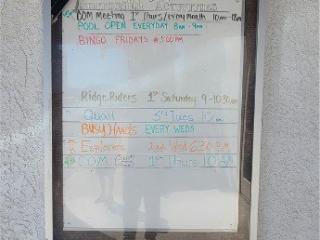 ACTIVITIES
COM Meeting 1st Thurs/every Month 10am
POOL OPEN EVERYDAY 8AM - 9PM
BINGO FRIDAYS @ 5:00PM
Ridge Riders 1st Saturday 9-10:30
Quail 3rd Tues 10am
BUSY Hands EVERY WEDS
Explorers 2nd Wed 6:30 PM
COM 1st Thurs 10 AM